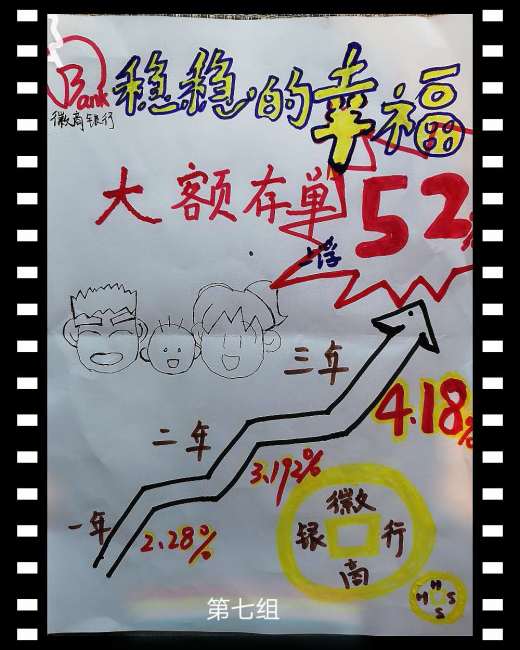 Bank
徽商银行
稳稳的幸福
大额存单
上浮
52%
三年
4.18%
二年
3.192%
一年
2.28%
徽商银行
HHSS
第七组